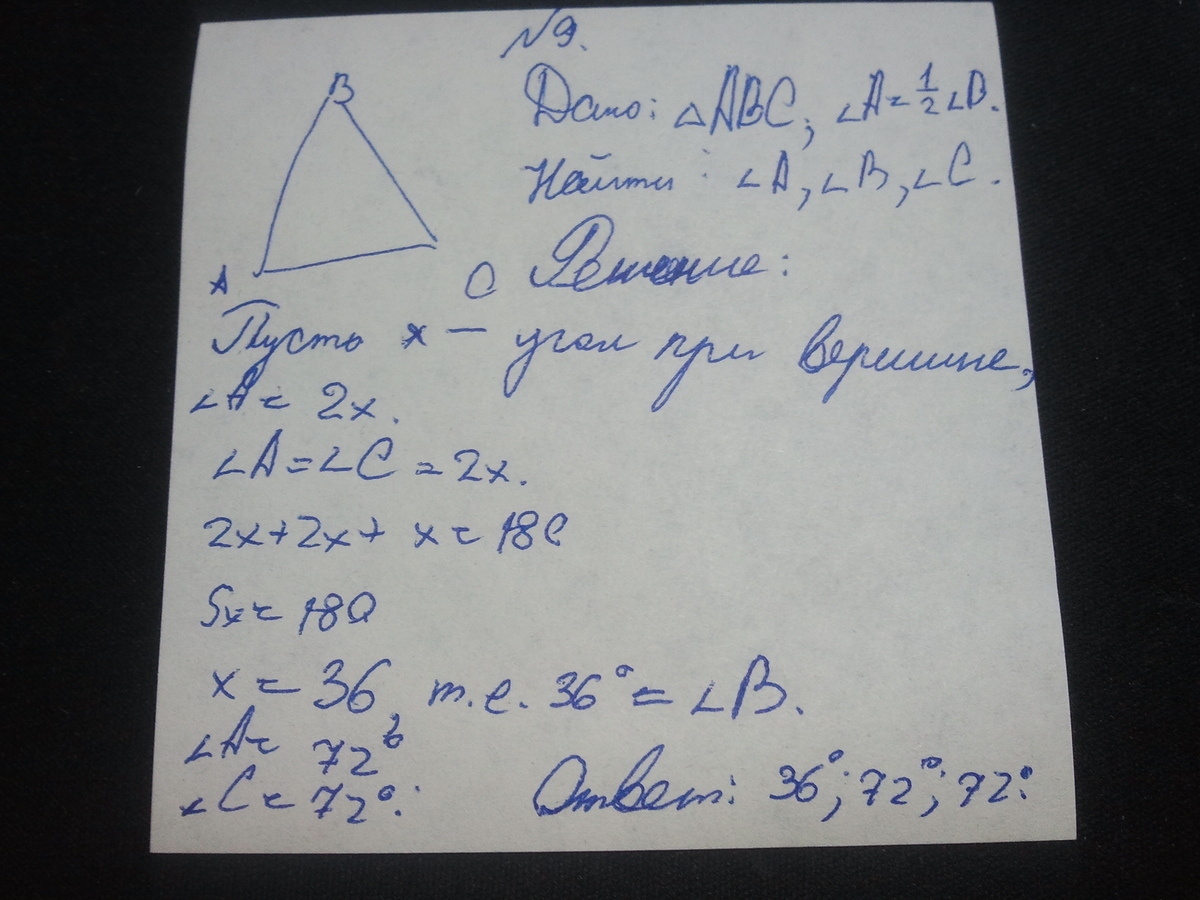 №9.
B
Дано: △ABC; ∠A = 1/2 ∠B.
Найти: ∠A, ∠B, ∠C.
A
C
Решение:
Пусть x — угол при вершине,
∠A = 2x.
∠A = ∠C = 2x.
2x + 2x + x = 180
5x = 180
x = 36, т.е. 36° = ∠B.
∠A = 72°
∠C = 72°.
Ответ: 36°; 72°; 72°.